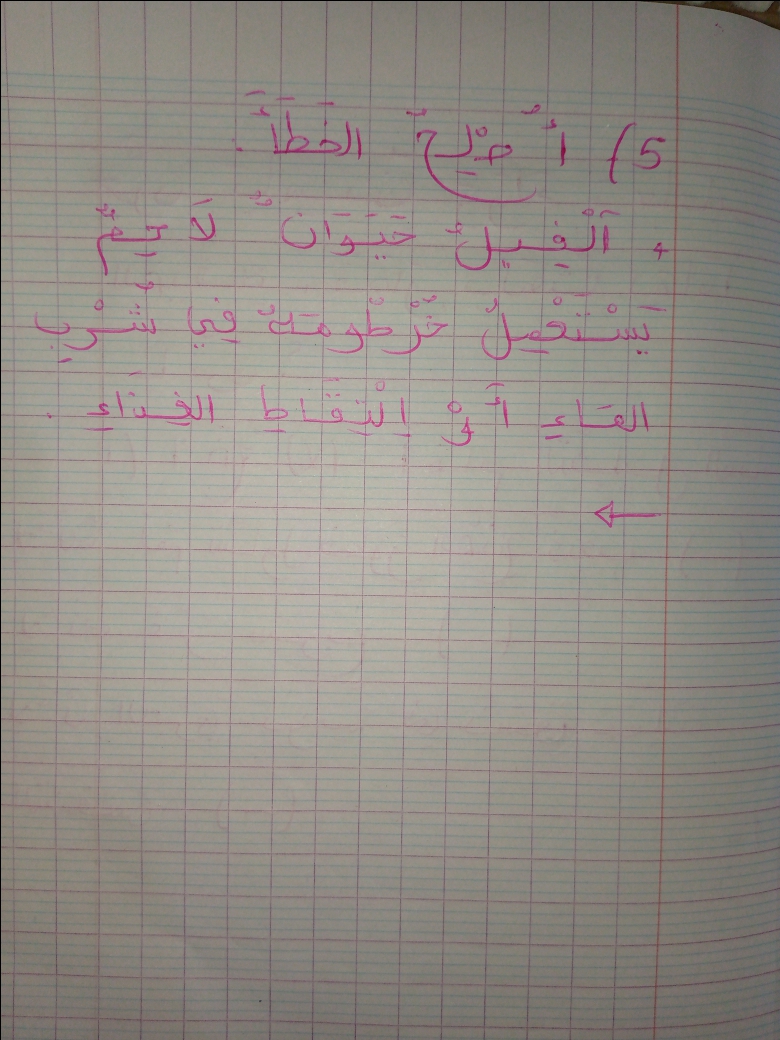 5) أُصْلِحُ الخَطَأَ .
. اَلْفِيلُ حَيَوَانٌ لَاحِمٌ
يَسْتَعْمِلُ خُرْطُومَهُ فِي شُرْبِ
المَاءِ أَوْ اِلْتِقَاطِ الغِذَاءِ .
←